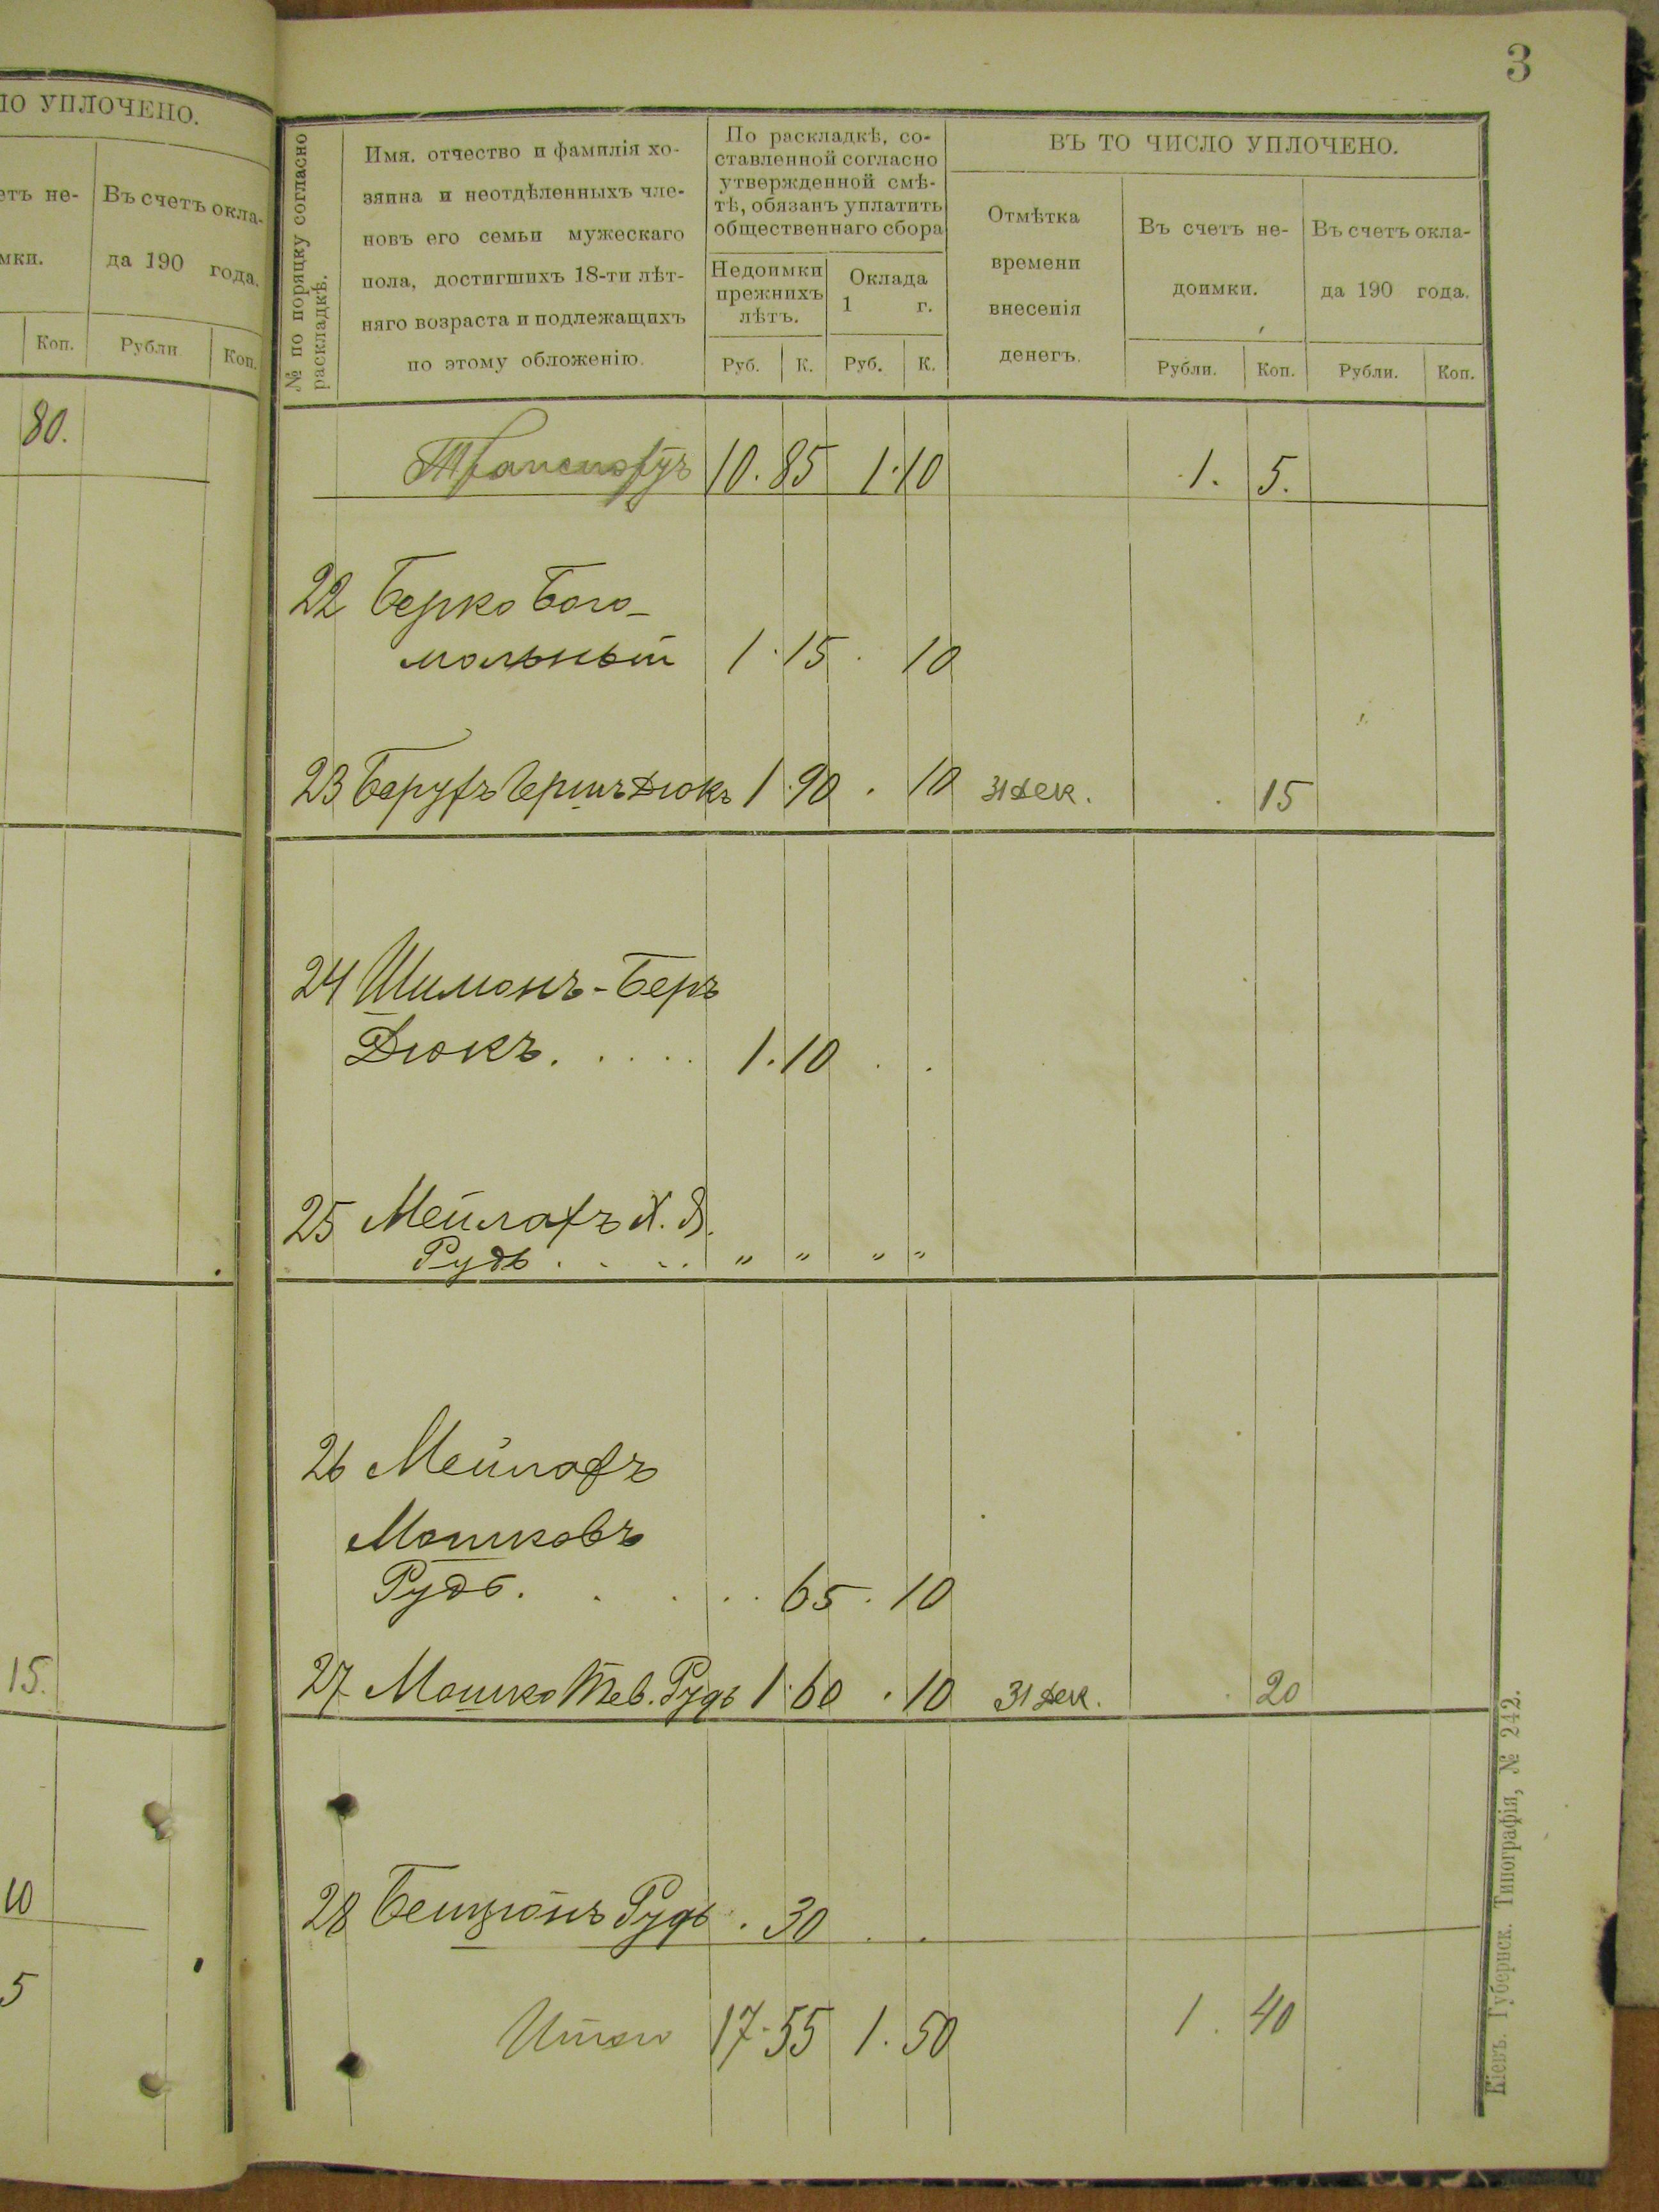 3
ЛО УПЛОЧЕНО.
етъ не-
мки.
Въ счетъ окла-
да 190 года.
Коп. Рубли Коп.
80.
15.
10
5
№ по порядку согласно
раскладкѣ.
Имя. отчество и фамилія хо-
зяина и неотдѣленныхъ чле-
новъ его семьи мужескаго
пола, достигшихъ 18-ти лѣт-
няго возраста и подлежащихъ
по этому обложенію.
По раскладкѣ, со-
ставленной согласно
утвержденной смѣ-
тѣ, обязанъ уплатить
общественнаго сбора
Недоимки
прежнихъ
лѣтъ.
Оклада
1 г.
Руб. К. Руб. К.
ВЪ ТО ЧИСЛО УПЛОЧЕНО.
Отмѣтка
времени
внесенія
денегъ.
Въ счетъ не-
доимки.
Въ счетъ окла-
да 190 года.
Рубли. Коп. Рубли. Коп.
Транспортъ 10. 85 1. 10 1. 5.
22 Берко Бого-
мольный 1. 15 . 10
23 Берухъ Гершъ Дюкъ 1. 90 . 10 31 дек. . 15
24 Шимонъ-Беръ
Дюкъ. . . . . 1. 10 . .
25 Мейлахъ Х. Д.
Рудь . . . . " " " "
26 Мейлахъ
Мошковъ
Рудь. . . . . 65 . 10
27 Мошко Тев. Рудь 1. 60 . 10 31 дек. . 20
28 Бенціонъ Рудь . 30 . .
Итого 17. 55 1. 50 1. 40
Кіевъ. Губернск. Типографія, № 242.